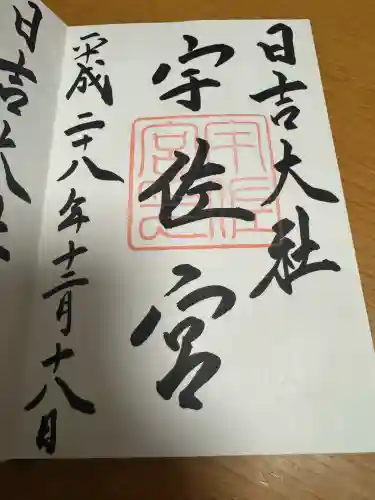 日吉大社
宇佐宮
平成二十八年十二月十八日
日吉大社